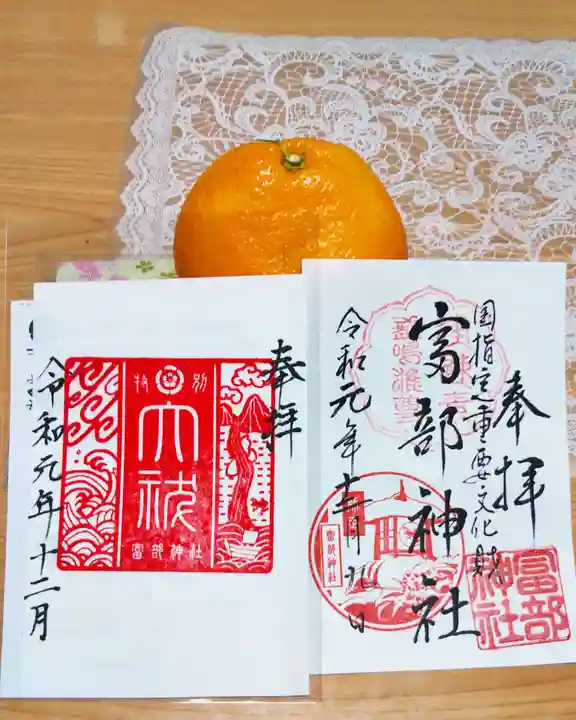 奉拝
国指定重要文化財
富部神社
令和元年十二月九日
富部神社
富部神社
奉拝
特別
大祓
富部神社
令和元年十二月